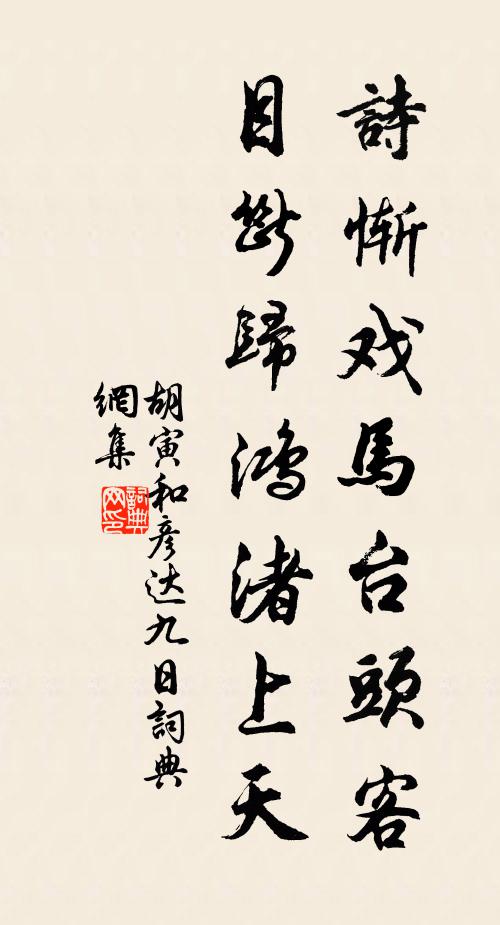 詩慚戏馬台頭客
目断歸鴻渚上天
胡寅和彦达九日詞典
網集
詞典网印